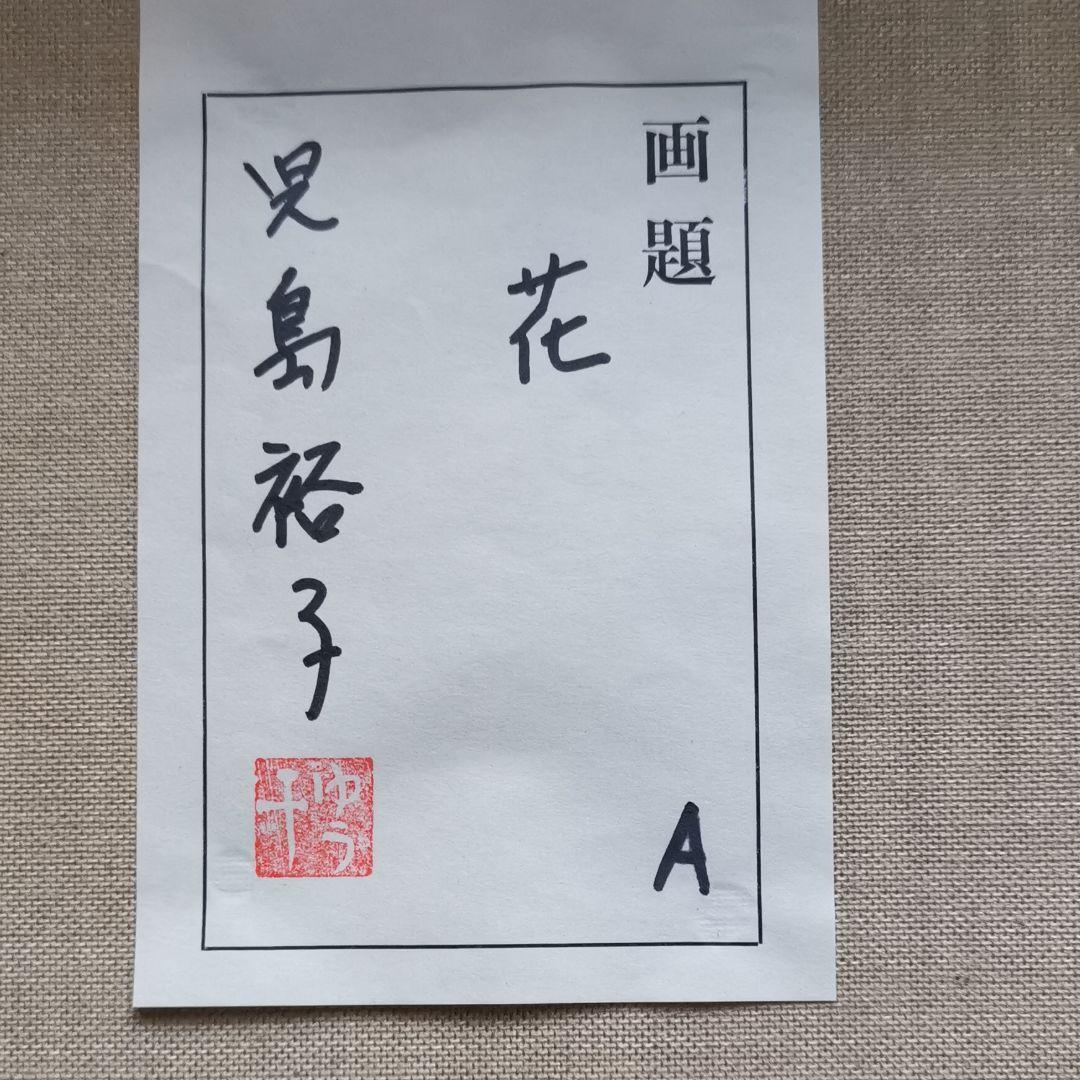 画題
花
A
児島裕子
ゆう
子